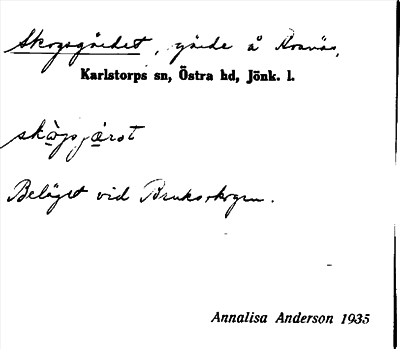 Skogsgärdet, gärde å Rosnäs,
Karlstorps sn, Östra hd, Jönk. l.
skògsjærət
Beläget vid Bruksskogen.
Annalisa Anderson 1935